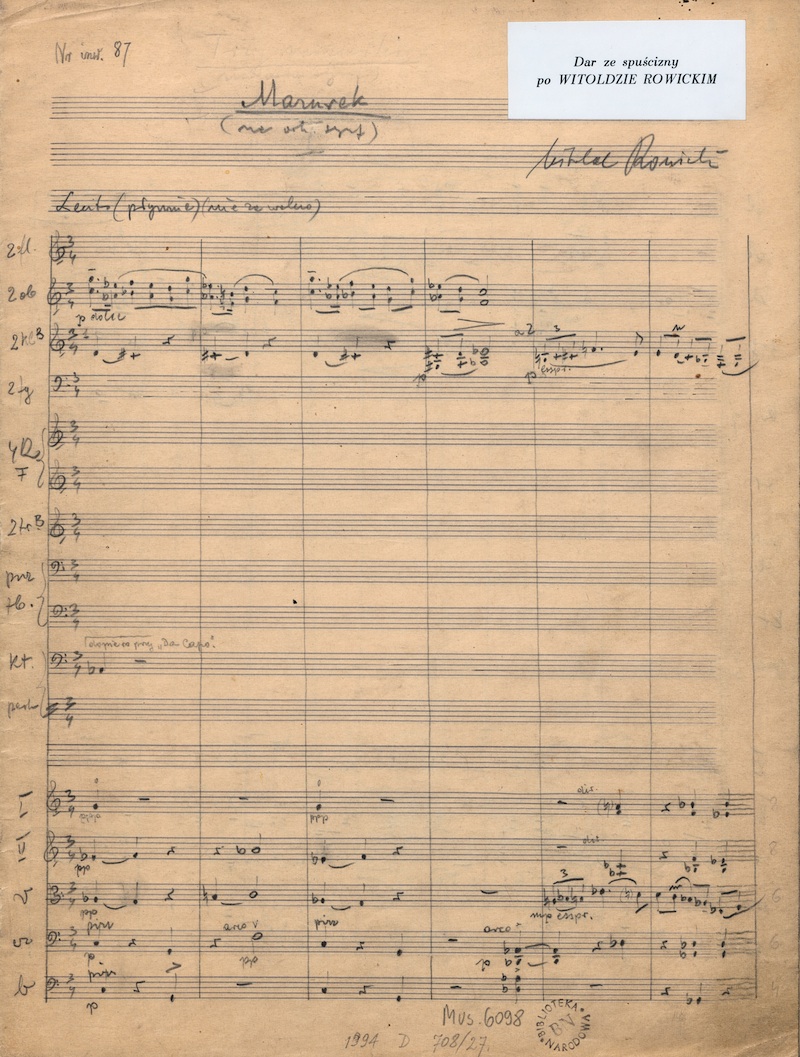 Nr inst. 87
Dar ze spuścizny
po WITOLDZIE ROWICKIM
Mazurek
(na ork. symf)
Witold Rowicki
Lento (płynnie) (nie za wolno)
2 fl.
2 ob
p dolce
2 kl B
a 2
3
p
p espr.
2 fg
4
F
2 tr B
tb.
"Da Capo".
kt.
perk
I
div.
ppp
ppp
II
div.
pp
3
pp
mp espr.
pizz
arco V
pizz
arco
p
pp
b
pizz
p
Mus. 6098
BIBLIOTEKA NARODOWA
BN
1994 D 708/27.